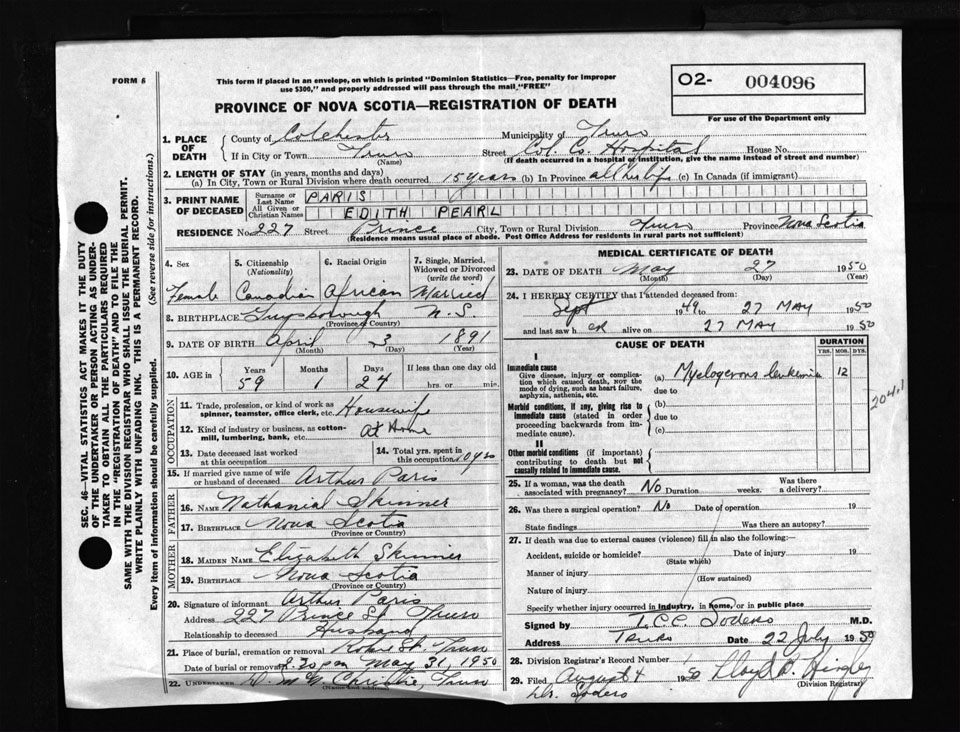 FORM 6
This form if placed in an envelope, on which is printed "Dominion Statistics—Free, penalty for improper
use $300," and properly addressed will pass through the mail "FREE"
O2- 004096
For use of the Department only
PROVINCE OF NOVA SCOTIA—REGISTRATION OF DEATH
SEC. 46—VITAL STATISTICS ACT MAKES IT THE DUTY
OF THE UNDERTAKER OR PERSON ACTING AS UNDER-
TAKER TO OBTAIN ALL THE PARTICULARS REQUIRED
IN THE "REGISTRATION OF DEATH" AND TO FILE THE
SAME WITH THE DIVISION REGISTRAR WHO SHALL ISSUE THE BURIAL PERMIT.
WRITE PLAINLY WITH UNFADING INK. THIS IS A PERMANENT RECORD.
Every item of Information should be carefully supplied. (See reverse side for instructions.)
1. PLACE OF DEATH County of Colchester Municipality of Truro
If in City or Town Truro (Name) Street Col. Co. Hospital House No.
(If death occurred in a hospital or institution, give the name instead of street and number)
2. LENGTH OF STAY (in years, months and days)
(a) In City, Town or Rural Division where death occurred 15 years (b) In Province all her life (c) In Canada (if immigrant)
3. PRINT NAME OF DECEASED Surname or Last Name PARIS
All Given or Christian Names EDITH PEARL
RESIDENCE No. 227 Street Prince City, Town or Rural Division Truro Province Nova Scotia
(Residence means usual place of abode. Post Office Address for residents in rural parts not sufficient)
4. Sex 5. Citizenship (Nationality) 6. Racial Origin 7. Single, Married, Widowed or Divorced (write the word)
Female Canadian African Married
8. BIRTHPLACE Guysborough N.S.
(Province or Country)
9. DATE OF BIRTH April 3 1891
(Month) (Day) (Year)
10. AGE in Years Months Days If less than one day old
59 1 24 hrs. or min.
OCCUPATION
11. Trade, profession, or kind of work as spinner, teamster, office clerk, etc. Housewife
12. Kind of industry or business, as cotton-mill, lumbering, bank, etc. At Home
13. Date deceased last worked at this occupation 14. Total yrs. spent in this occupation
15. If married give name of wife or husband of deceased Arthur Paris
FATHER
16. NAME Nathanial Skinner
17. BIRTHPLACE Nova Scotia
(Province or Country)
MOTHER
18. MAIDEN NAME Elizabeth Skinner
19. BIRTHPLACE Nova Scotia
(Province or Country)
20. Signature of informant Arthur Paris
Address 227 Prince St. Truro
Relationship to deceased Husband
21. Place of burial, cremation or removal Robie St. Truro
Date of burial or removal May 31, 1950
22. UNDERTAKER Christie, Truro
MEDICAL CERTIFICATE OF DEATH
23. DATE OF DEATH May 27 1950
(Month) (Day) (Year)
24. I HEREBY CERTIFY that I attended deceased from:
Sept 1949 to 27 MAY 1950
and last saw h er alive on 27 MAY 1950
CAUSE OF DEATH DURATION
YRS. MOS. DYS.
I
Immediate cause
Give disease, injury or complication which caused death, not the mode of dying, such as heart failure, asphyxia, asthenia, etc.
(a) Myelogenous leukemia 12
due to
204.1
Morbid conditions, if any, giving rise to immediate cause (stated in order proceeding backwards from immediate cause).
(b)
due to
(c)
II
Other morbid conditions (if important) contributing to death but not causally related to immediate cause.
25. If a woman, was the death associated with pregnancy? No Duration weeks. Was there a delivery?
26. Was there a surgical operation? No Date of operation 19
State findings Was there an autopsy?
27. If death was due to external causes (violence) fill in also the following:—
Accident, suicide or homicide? Date of injury 19
(State which)
Manner of injury
(How sustained)
Nature of injury
Specify whether injury occurred in industry, in home, or in public place
Signed by Soders M.D.
Address Truro Date 22 July 1950
28. Division Registrar's Record Number
29. Filed August 4 1950 Lloyd
(Division Registrar)
Dr. Soders